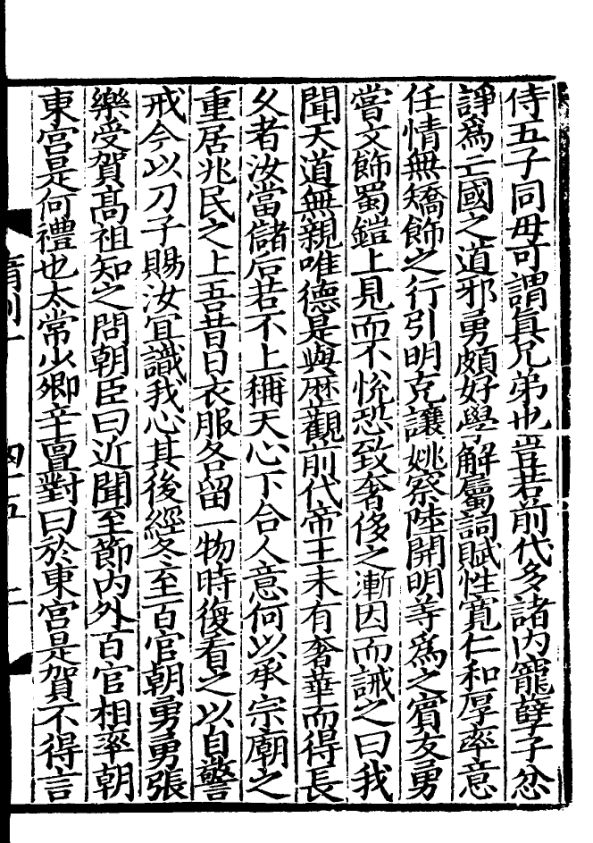 侍五子同毋可謂眞兄弟也豈若前代多諸内寵孽子忿
諍爲亡國之道邪勇頗好學解屬詞賦性寬仁和厚率意
任情無矯飾之行引明克讓姚察陸開明等爲之賓友勇
嘗文飾蜀鎧上見而不恱恐致奢侈之漸因而誡之曰我
聞天道無親唯德是與歷觀前代帝王未有奢華而得長
乆者汝當儲后若不上稱天心下合人意何以承宗廟之
重居兆民之上吾昔日衣服各留一物時復看之以自警
戒今以刀子賜汝宜識我心其後經冬至百官朝勇勇張
樂受賀髙祖知之問朝臣曰近聞至節内外百官相率朝
東宮是何禮也太常少卿辛亶對曰於東宮是賀不得言
隋列十 四十五 二